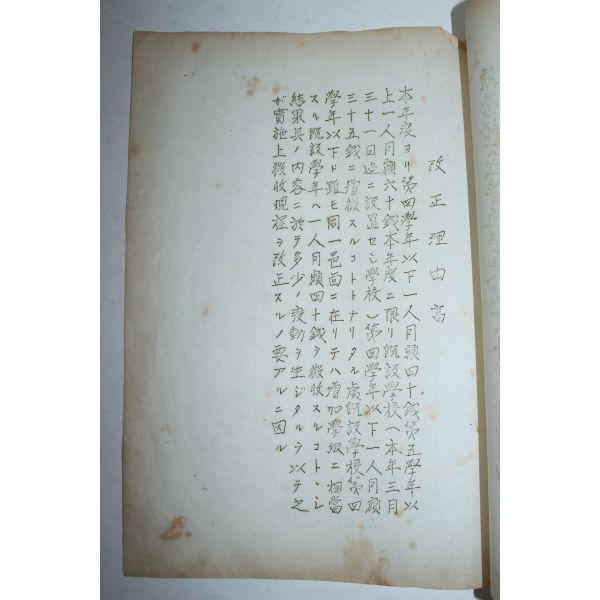 改正理由書
本年度ヨリ第四學年以下一人月額四十錢第五學年以
上一人月額六十錢本年度ニ限リ既設學校(本年三月
三十一日迄ニ設置セシ學校)第四學年以下一人月額
三十五錢ニ增徵スルコトトナリタル處既設學校第四
學年以下ト雖モ同一邑面ニ在リテハ增加學級ニ相當
スル既設學年ハ一人月額四十錢ヲ徵收スルコトトシ
結果其ノ內容ニ於テ多少ノ變動ヲ生ジタルヲ以テ之
が實施上徵收規程ヲ改正スルノ要アルニ因ル